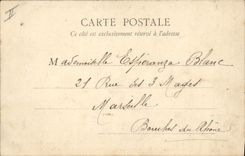 CARTE POSTALE
Ce côté est exclusivement réservé à l'adresse
Mademoiselle Espéranza Blanc
21 Rue des 3 Mages
Marseille
Bouches du Rhône